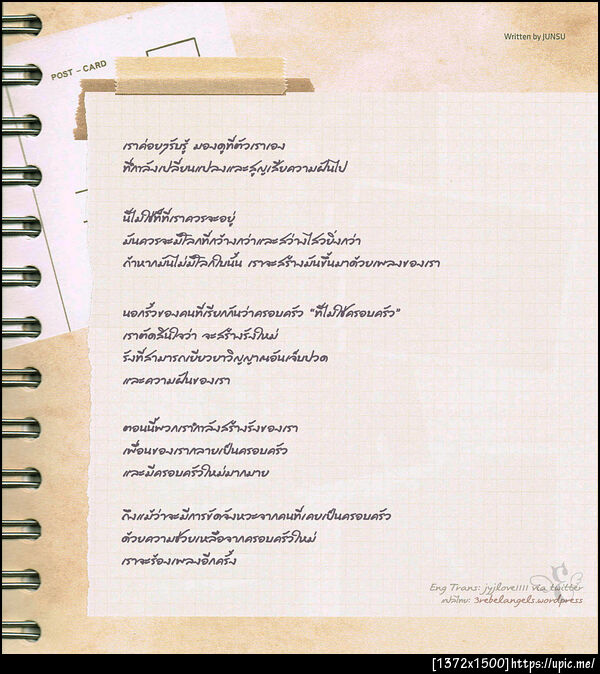 Written by JUNSU
POST-CARD
เราค่อยๆรับรู้ มองดูที่ตัวเราเอง
ที่กำลังเปลี่ยนแปลงและสูญเสียความฝันไป
นี่ไม่ใช่ที่ที่เราควรจะอยู่
มันควรจะมีโลกที่กว้างกว่าและสว่างไสวยิ่งกว่า
ถ้าหากมันไม่มีโลกใบนั้น เราจะสร้างมันขึ้นมาด้วยเพลงของเรา
นอกรั้วของคนที่เรียกกันว่าครอบครัว "ที่ไม่ใช่ครอบครัว"
เราตัดสินใจว่า จะสร้างรังใหม่
รังที่สามารถเยียวยาวิญญาณอันเจ็บปวด
และความฝันของเรา
ตอนนี้พวกเรากำลังสร้างรังของเรา
เพื่อนของเรากลายเป็นครอบครัว
และมีครอบครัวใหม่มากมาย
ถึงแม้ว่าจะมีการขัดจังหวะจากคนที่เคยเป็นครอบครัว
ด้วยความช่วยเหลือจากครอบครัวใหม่
เราจะร้องเพลงอีกครั้ง
Eng Trans: jyjlove1111 via twitter
แปลไทย: 3rebelangels.wordpress
[1372x1500]https://upic.me/